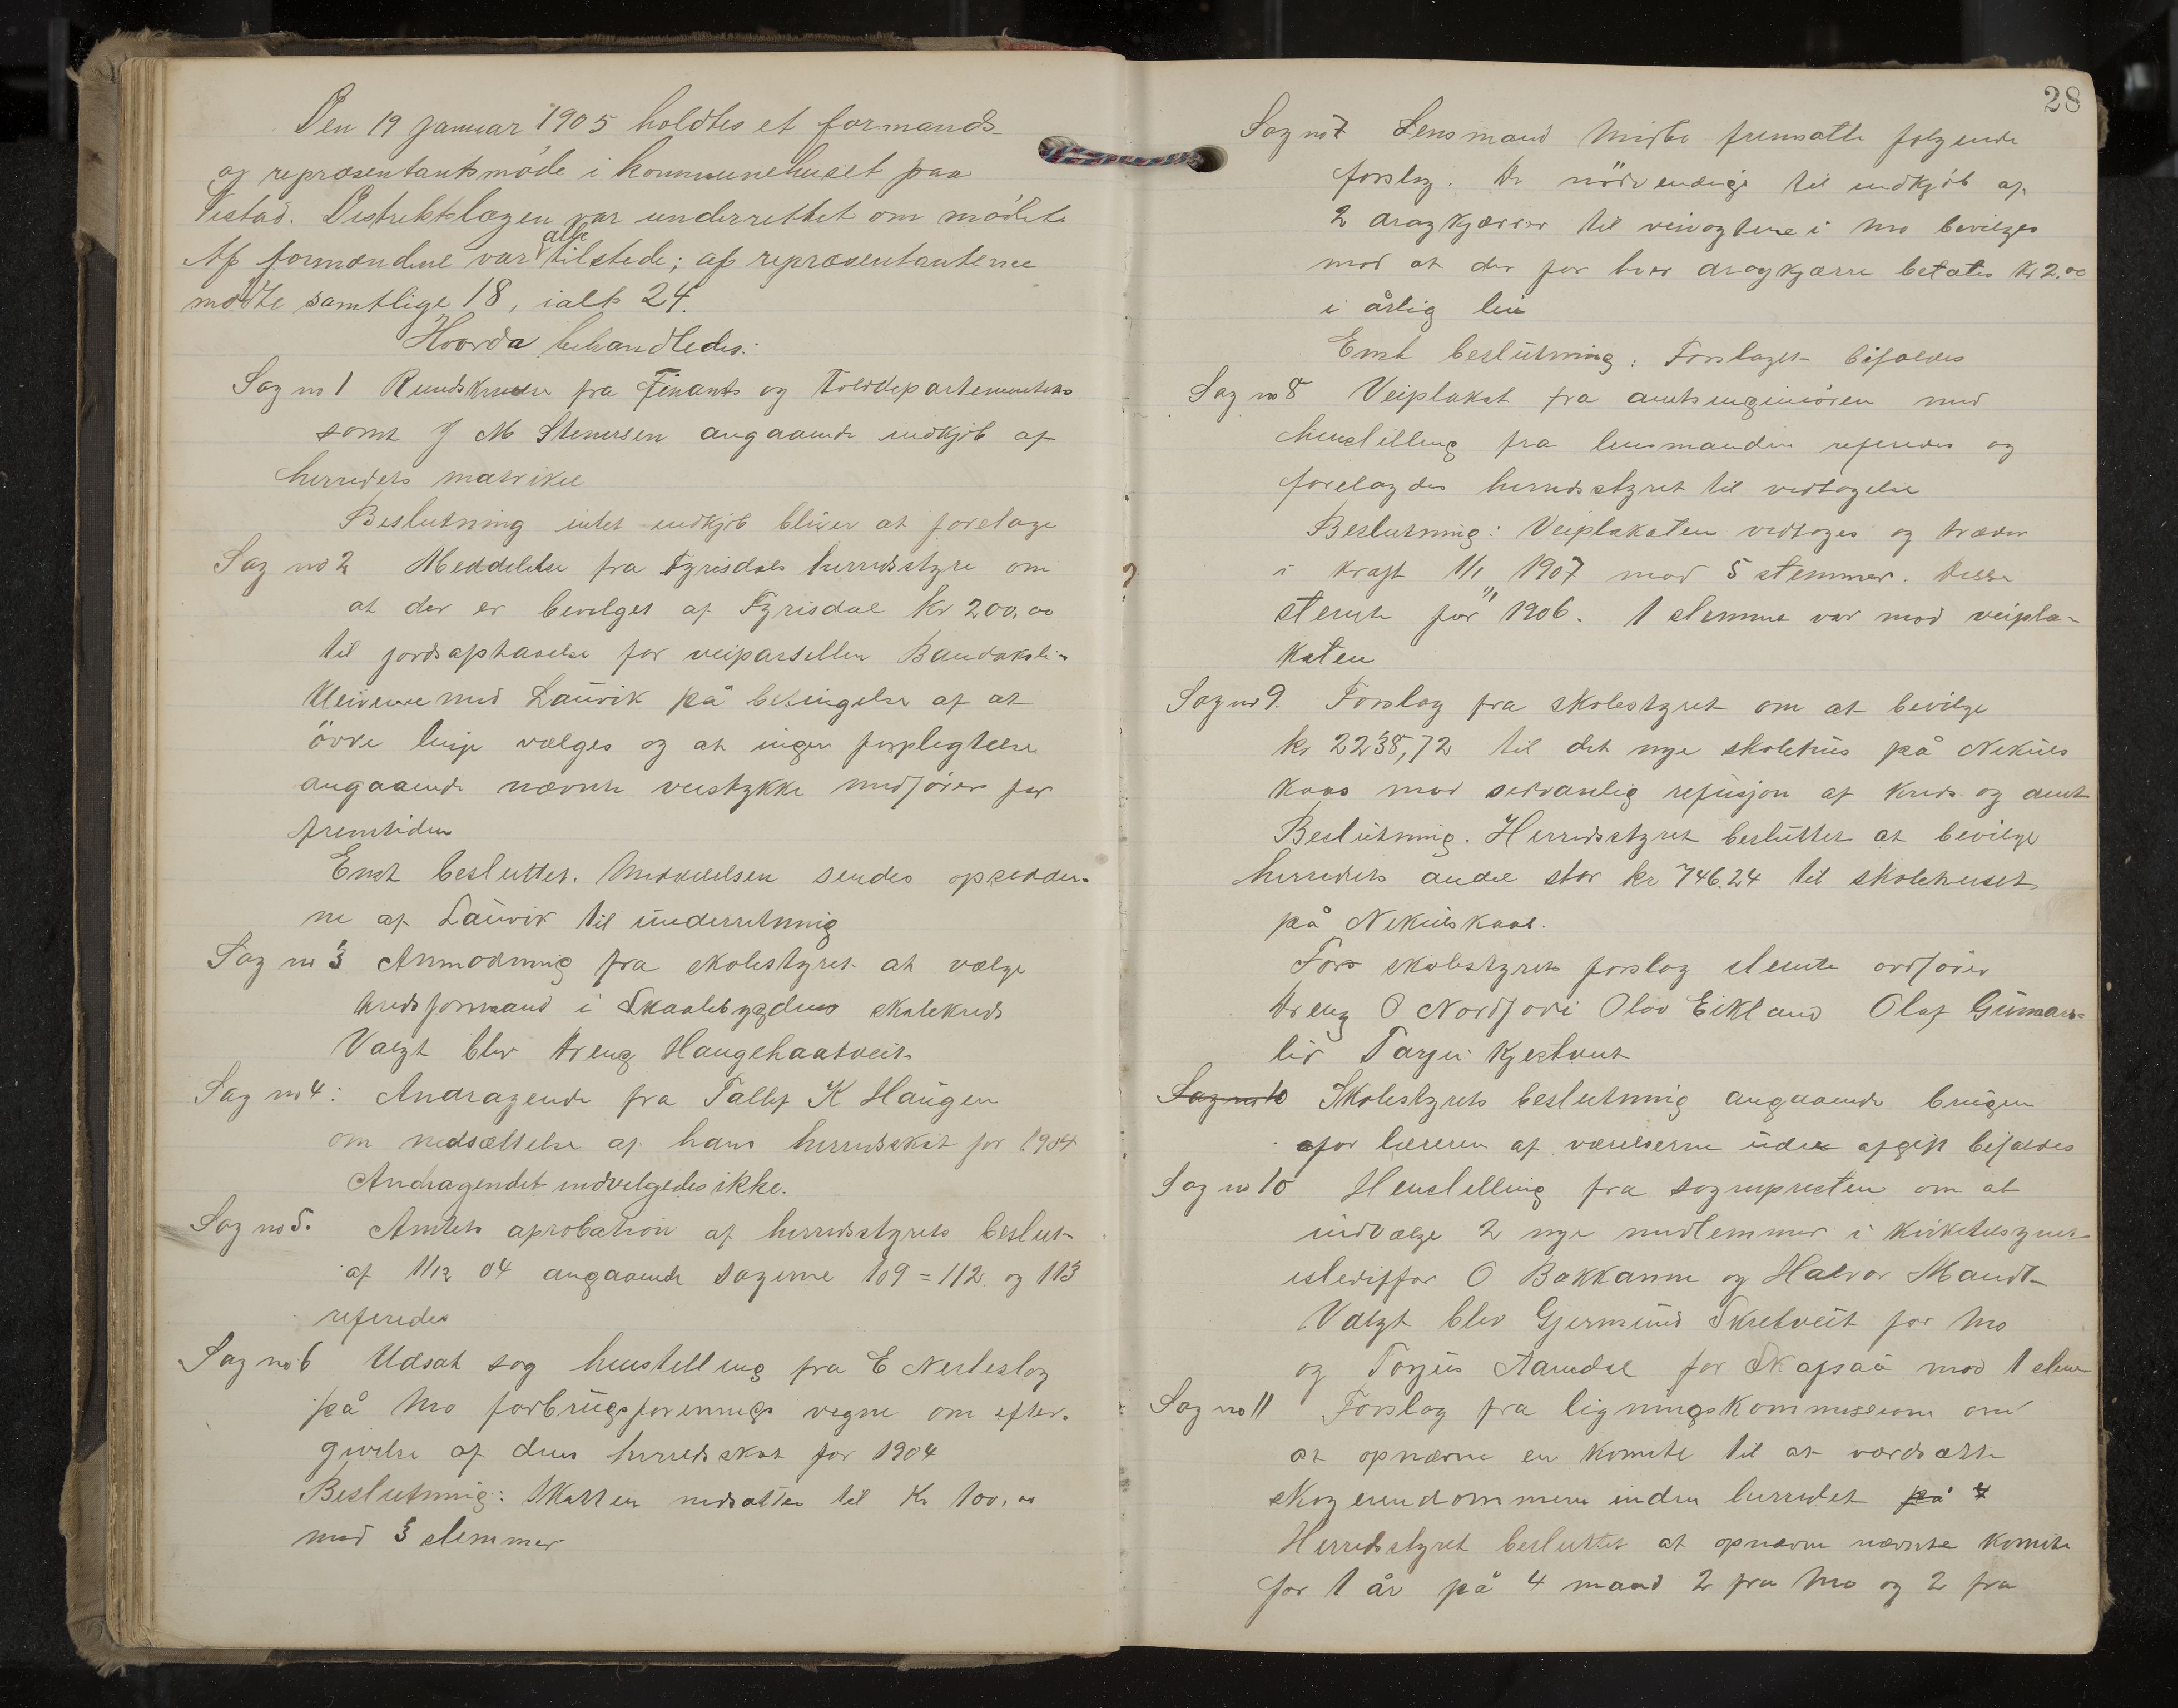 Den 19 januar 1905 holdtes et formands-
og repræsentantsmøde i kommunehuset paa
Vistad. Distriktslægen var underrettet om mødet
Af formændene var alle tilstede; af repræsentanterne
mødte samtlige 18, ialt 24.
Hvorda behandledes:
Sag no 1 Rundskrivelse fra Finants og Tolddepartementets
samt J M Stenersen angaaende indkjøb af
herredets matrikel
Beslutning intet indkjøb bliver at foretage
Sag no 2 Meddelelse fra Fyrisdals herredsstyre om
at der er bevilget af Fyrisdal kr 200,00
til jordsaphavelse for veiparsellen Bandaksli-
Kleivene med Lauvik på betingelse af at
övre linje vælges og at ingen forpligtelse
angaaende nævnte veistykke medfører for
fremtiden
Emst besluttet. Meddelelsen sendes opsidder-
ne af Lauvik til underretning
Sag no 3 Anmodning fra skolestyret at vælge
kredsformand i Skaalebygdens skolekreds
Valgt blev Dreng Haugehaatveit
Sag no 4: Andragende fra Tallef K Haugen
om nedsættelse af hans herredsskat for 1904
Andragendet indvilgedes ikke.
Sag no 5. Amtets aprobation af herredsstyrets beslut-
af 1/12 04 angaaende sagerne 109 = 112 og 113
referedes
Sag no 6 Udsat sag henstelling fra E Nerleslog
på Mo forbrugsforenings vegne om efter-
givelse af dens herredsskat for 1904
Beslutning: Skatten nedsattes til Kr 100,00
mod 3 stemmer
28
Sag no 7 Lensmand Midbø fremsatte følgende
forslag. De nödvendige til indkjöb af
2 dragkjærrer til veivogterne i Mo bevilges
mod at der for hver dragkjærre betales Kr 2.00
i årlig leie
Emst beslutning: Forslaget bifaldes
Sag no 8 Veiplakat fra amtsingeniören med
henstilling fra lensmanden referedes og
forelagdes herredsstyret til vedtagelse
Beslutning: Veiplakaten vedtoges og træder
i kraft 1/1 1907 mod 5 stemmer. Disse
stemte for 1/1 1906. 1 stemme var mod veipla-
katen
Sag no 9. Forslag fra skolestyret om at bevilge
kr 2238,72 til det nye skolehus på Nekuls
kaas mod sedvanlig refusjon af kreds og amt
Beslutning. Herredsstyret besluttet at bevilge
herredets andel stor kr 746.24 til skolehuset
på Nekulskaas.
For skolestyrets forslag stemte ordfører
Dreng O Nordjori Olav Eikland Olaf Gunnars-
lid Tarjei Kjestveit
Sag no 10 Skolestyrets beslutning angaaende brugen
for læreren af værelserne uden afgift bifaldes
Sag no 10 Henstelling fra sognepresten om at
indvælge 2 nye medlemmer i kirketilsynet
istedetfor O Bakkanne og Halvor Mandt
Valgt blev Gjermund Skretveit for Mo
og Torjus Aamdal for Skafsaa mod 1 stem
Sag no 11 Forslag fra ligningskommissionen om
at opnævne en komite til at værdsætte
skogeiendommene inden herredet på 4
Herredsstyret besluttet at opnævne nævnte komite
for 1 år på 4 mand 2 fra Mo og 2 fra